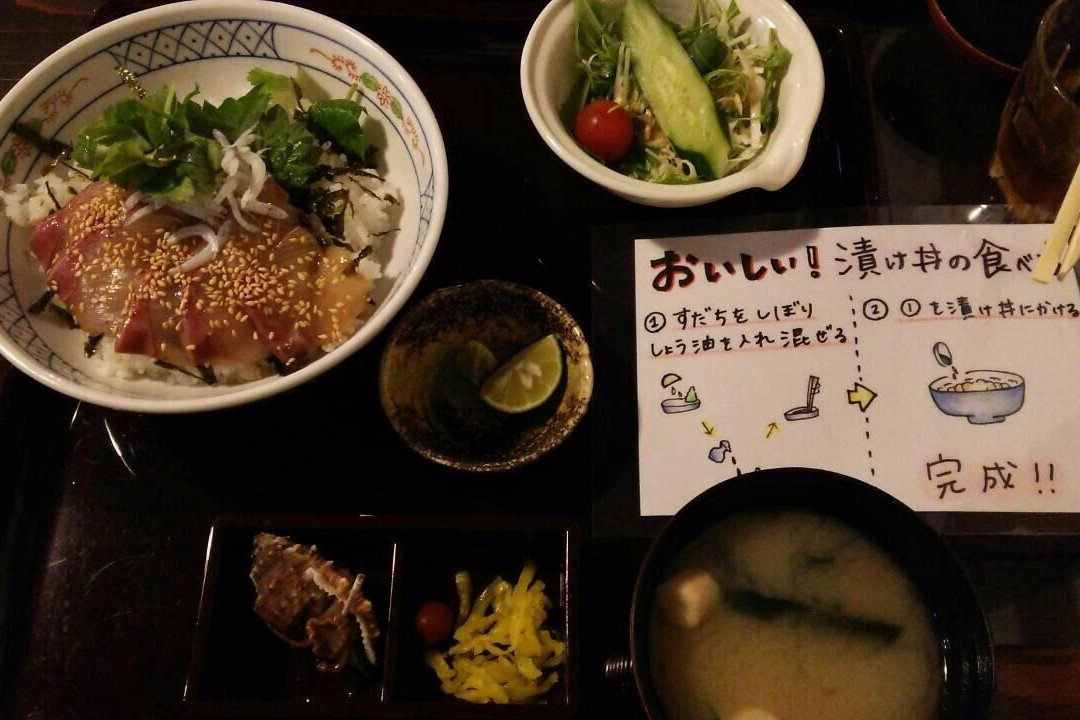 おいしい!漬け丼の食べ
① すだちをしぼり
しょう油を入れ混ぜる
② ①を漬け丼にかける
完成!!